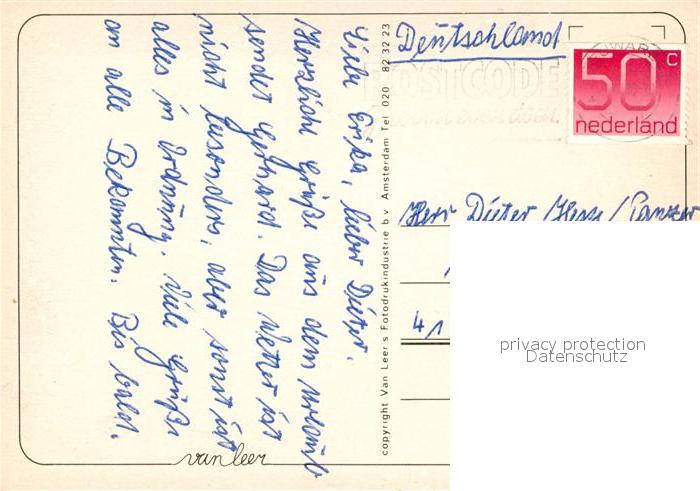 Liebe Erika, lieber Dieter.
Herzliche Grüße aus dem Urlaub
sendet Gerhard. Das Wetter ist
nicht besonders, aber sonst ist
alles in Ordnung. Viele Grüße
an alle Bekannten. Bis bald.
van leer
copyright Van Leer's Fotodrukindustrie b.v. Amsterdam Tel. 020 82 32 23
Deutschland
POSTCODE
50 c
nederland
Herr Dieter Hesse / Panzer
41
privacy protection
Datenschutz